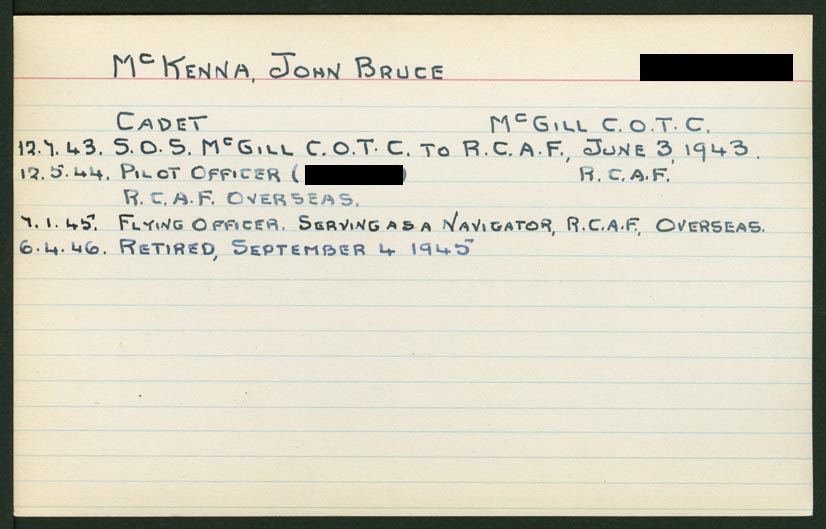 McKENNA, JOHN BRUCE
CADET McGILL C.O.T.C.
12.7.43. S.O.S. McGILL C.O.T.C. TO R.C.A.F., JUNE 3, 1943.
12.5.44. PILOT OFFICER ( ) R.C.A.F.
R.C.A.F. OVERSEAS.
7.1.45. FLYING OFFICER. SERVING AS A NAVIGATOR, R.C.A.F. OVERSEAS.
6.4.46. RETIRED, SEPTEMBER 4 1945